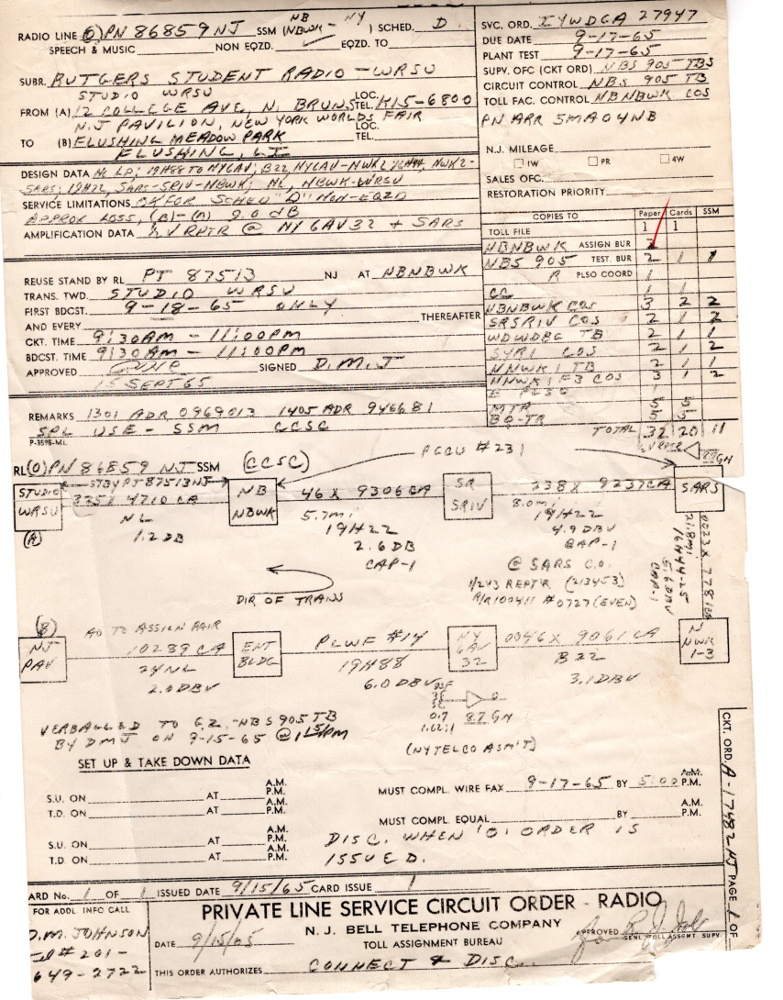 RADIO LINE (O)PN 86859 NJ SSM (NBWK - NY) SCHED. D.
SPEECH & MUSIC NON EQZD. ✓ EQZD. TO
SUBR. RUTGERS STUDENT RADIO - WRSU
STUDIO WRSU LOC.
FROM (A) 12 COLLEGE AVE, N. BRUNS TEL. K15-6800
N.J. PAVILION, NEW YORK WORLDS FAIR LOC.
TO (B) FLUSHING MEADOW PARK TEL.
FLUSHING, L.I.
SERVICE LIMITATIONS OK FOR SCHED "D" NON-EQZD
APPROX LOSS, (B)-(A) 2.0 dB
AMPLIFICATION DATA V RPTR @ NY GAV 32 + SARS
SVC. ORD. IYWDGA 27947
DUE DATE 9-17-65
PLANT TEST 9-17-65
SUPV. OFC (CKT ORD) NBS 905 TBS
CIRCUIT CONTROL NBS 905 TB
TOLL FAC. CONTROL NBNBWK COS
PN ARR 5MA04NB
N.J. MILEAGE
1W PR 4W
SALES OFC.
RESTORATION PRIORITY
COPIES TO Paper Cards SSM
TOLL FILE 1 1
NBNBWK ASSIGN BUR
NBS 905 TEST. BUR 2 1 1
R PLSO COORD 1
CC 1 1
NBNBWK COS 3 2 2
SRSRIV COS 2 1 2
WDWDBG TB 2 1 1
SYRI COS 2 1 2
NNWK1 TB 2 1 1
NNWK1F3 COS 3 1 2
MTR 5 5
BQ-TR 5 5
TOTAL 32 20 11
REUSE STAND BY RL PT 87513 NJ AT NBNBWK
TRANS. TWD. STUDIO WRSU
FIRST BDCST. 9-18-65 ONLY
AND EVERY THEREAFTER
CKT. TIME 9:30AM - 11:00PM
BDCST. TIME 9:30AM - 11:00PM
APPROVED SIGNED D.M.J
15 SEPT 65
REMARKS 1301 ADR 0969013 1405 ADR 946681
SPL USE - SSM CCSC
P-3598-ML
RL(O)PN 86859 NJ SSM (CCSC) PGCU #231
STBY PT 87513NJ
STUDIO WRSU 335X 4710 CA NB NBWK 46X 9306CA SR SRIV 238X 9237CA SARS
(A) NL 5.7mi 8.0mi
1.2 DB 19H22 19H22
2.6 DB 4.9 DBV
CAP-1 CAP-1
@ SARS C.O.
DIR OF TRANS
(B)
AD TO ASSIGN PAIR
NJ PAV 10239 CA ENT BLDG PLWF #14 NY GAV 32 0046X 9061 CA N NWK 1-3
24NL 19H88 B22
2.0 DBV 6.0 DBV 3.1 DBV
0.7 8.7 GN
(NYTELCO ASM'T)
VERBALLED TO G.Z. - NBS 905 TB
BY DMJ ON 9-15-65 @
SET UP & TAKE DOWN DATA
S.U. ON AT A.M. P.M. MUST COMPL. WIRE FAX 9-17-65 BY 5:00 A.M. P.M.
T.D. ON AT A.M. P.M. MUST COMPL EQUAL. BY A.M. P.M.
S.U. ON AT A.M. P.M. DISC. WHEN 'O' ORDER IS
T.D. ON AT A.M. P.M. ISSUED.
CKT. ORD. A-17482 NJ PAGE 1 OF
ARD No. 1 OF 1 ISSUED DATE 9/15/65 CARD ISSUE 1
FOR ADDL INFO CALL
D.M. JOHNSON
201-
649-2722
PRIVATE LINE SERVICE CIRCUIT ORDER - RADIO
N. J. BELL TELEPHONE COMPANY
DATE 9/15/65 TOLL ASSIGNMENT BUREAU APPROVED
GENL TOLL ASSGMT SUPV
THIS ORDER AUTHORIZES CONNECT & DISC.